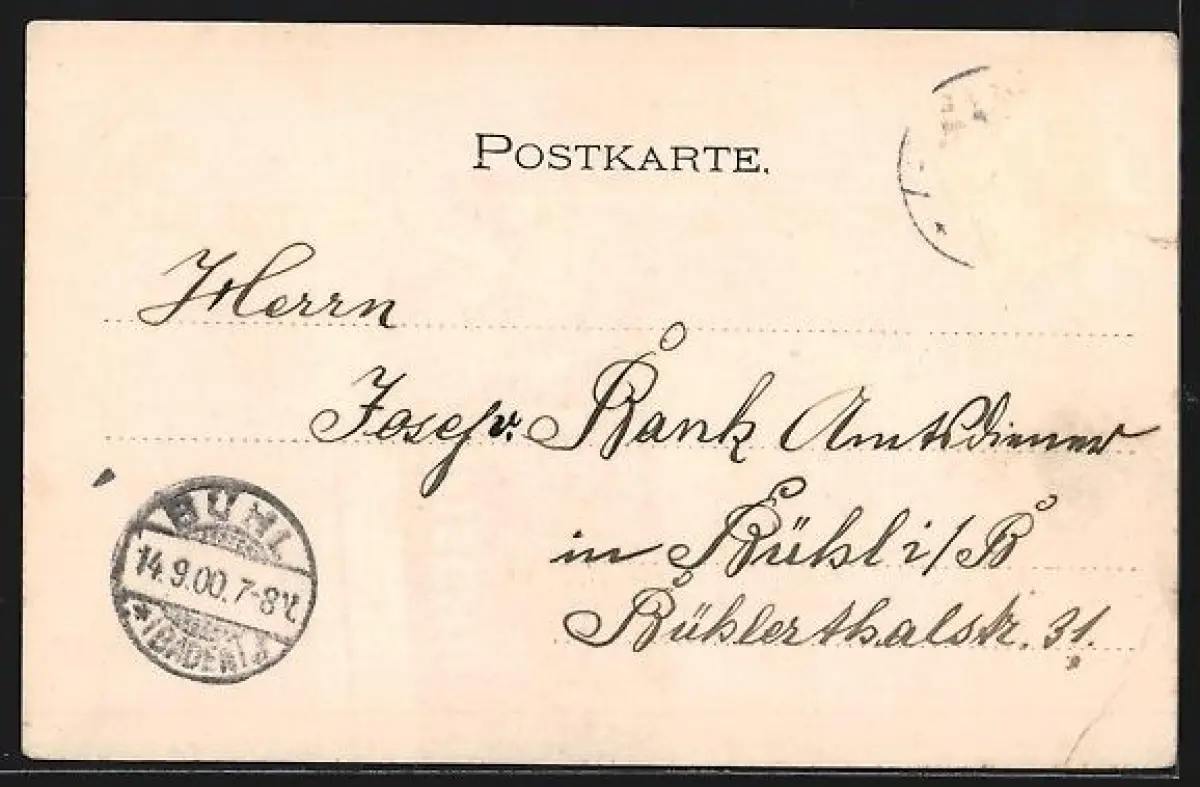 POSTKARTE.
Herrn
Josef v. Bank Amtsdiener
in Bühl i/B
Bühlerthalstr. 31.
BÜHL
14.9.00.7-8V.
* (BADEN)